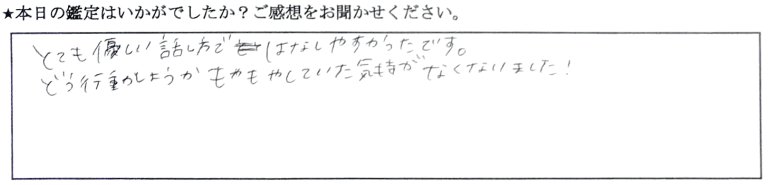 ★本日の鑑定はいかがでしたか？ご感想をお聞かせください。
とても優しい話し方で はなしやすかったです。
どう行動しようか もやもやしていた気持がなくないました！